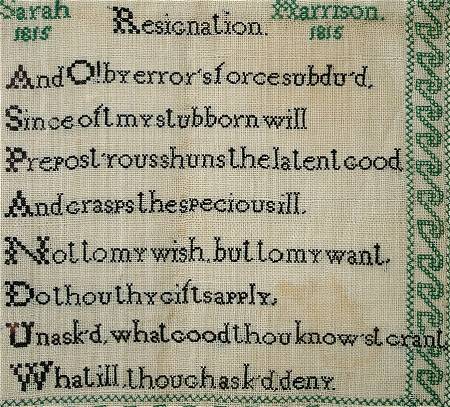 Sarah Resignation. Harrison.
1815 1815
And O! by error's force subdu'd,
Since oft my stubborn will
Prepost'rous shuns the latent good
And grasps the specious ill,
Not to my wish, but to my want,
Do thou thy gifts apply,
Unask'd, what good thou know'st grant
What ill, though ask'd, deny.